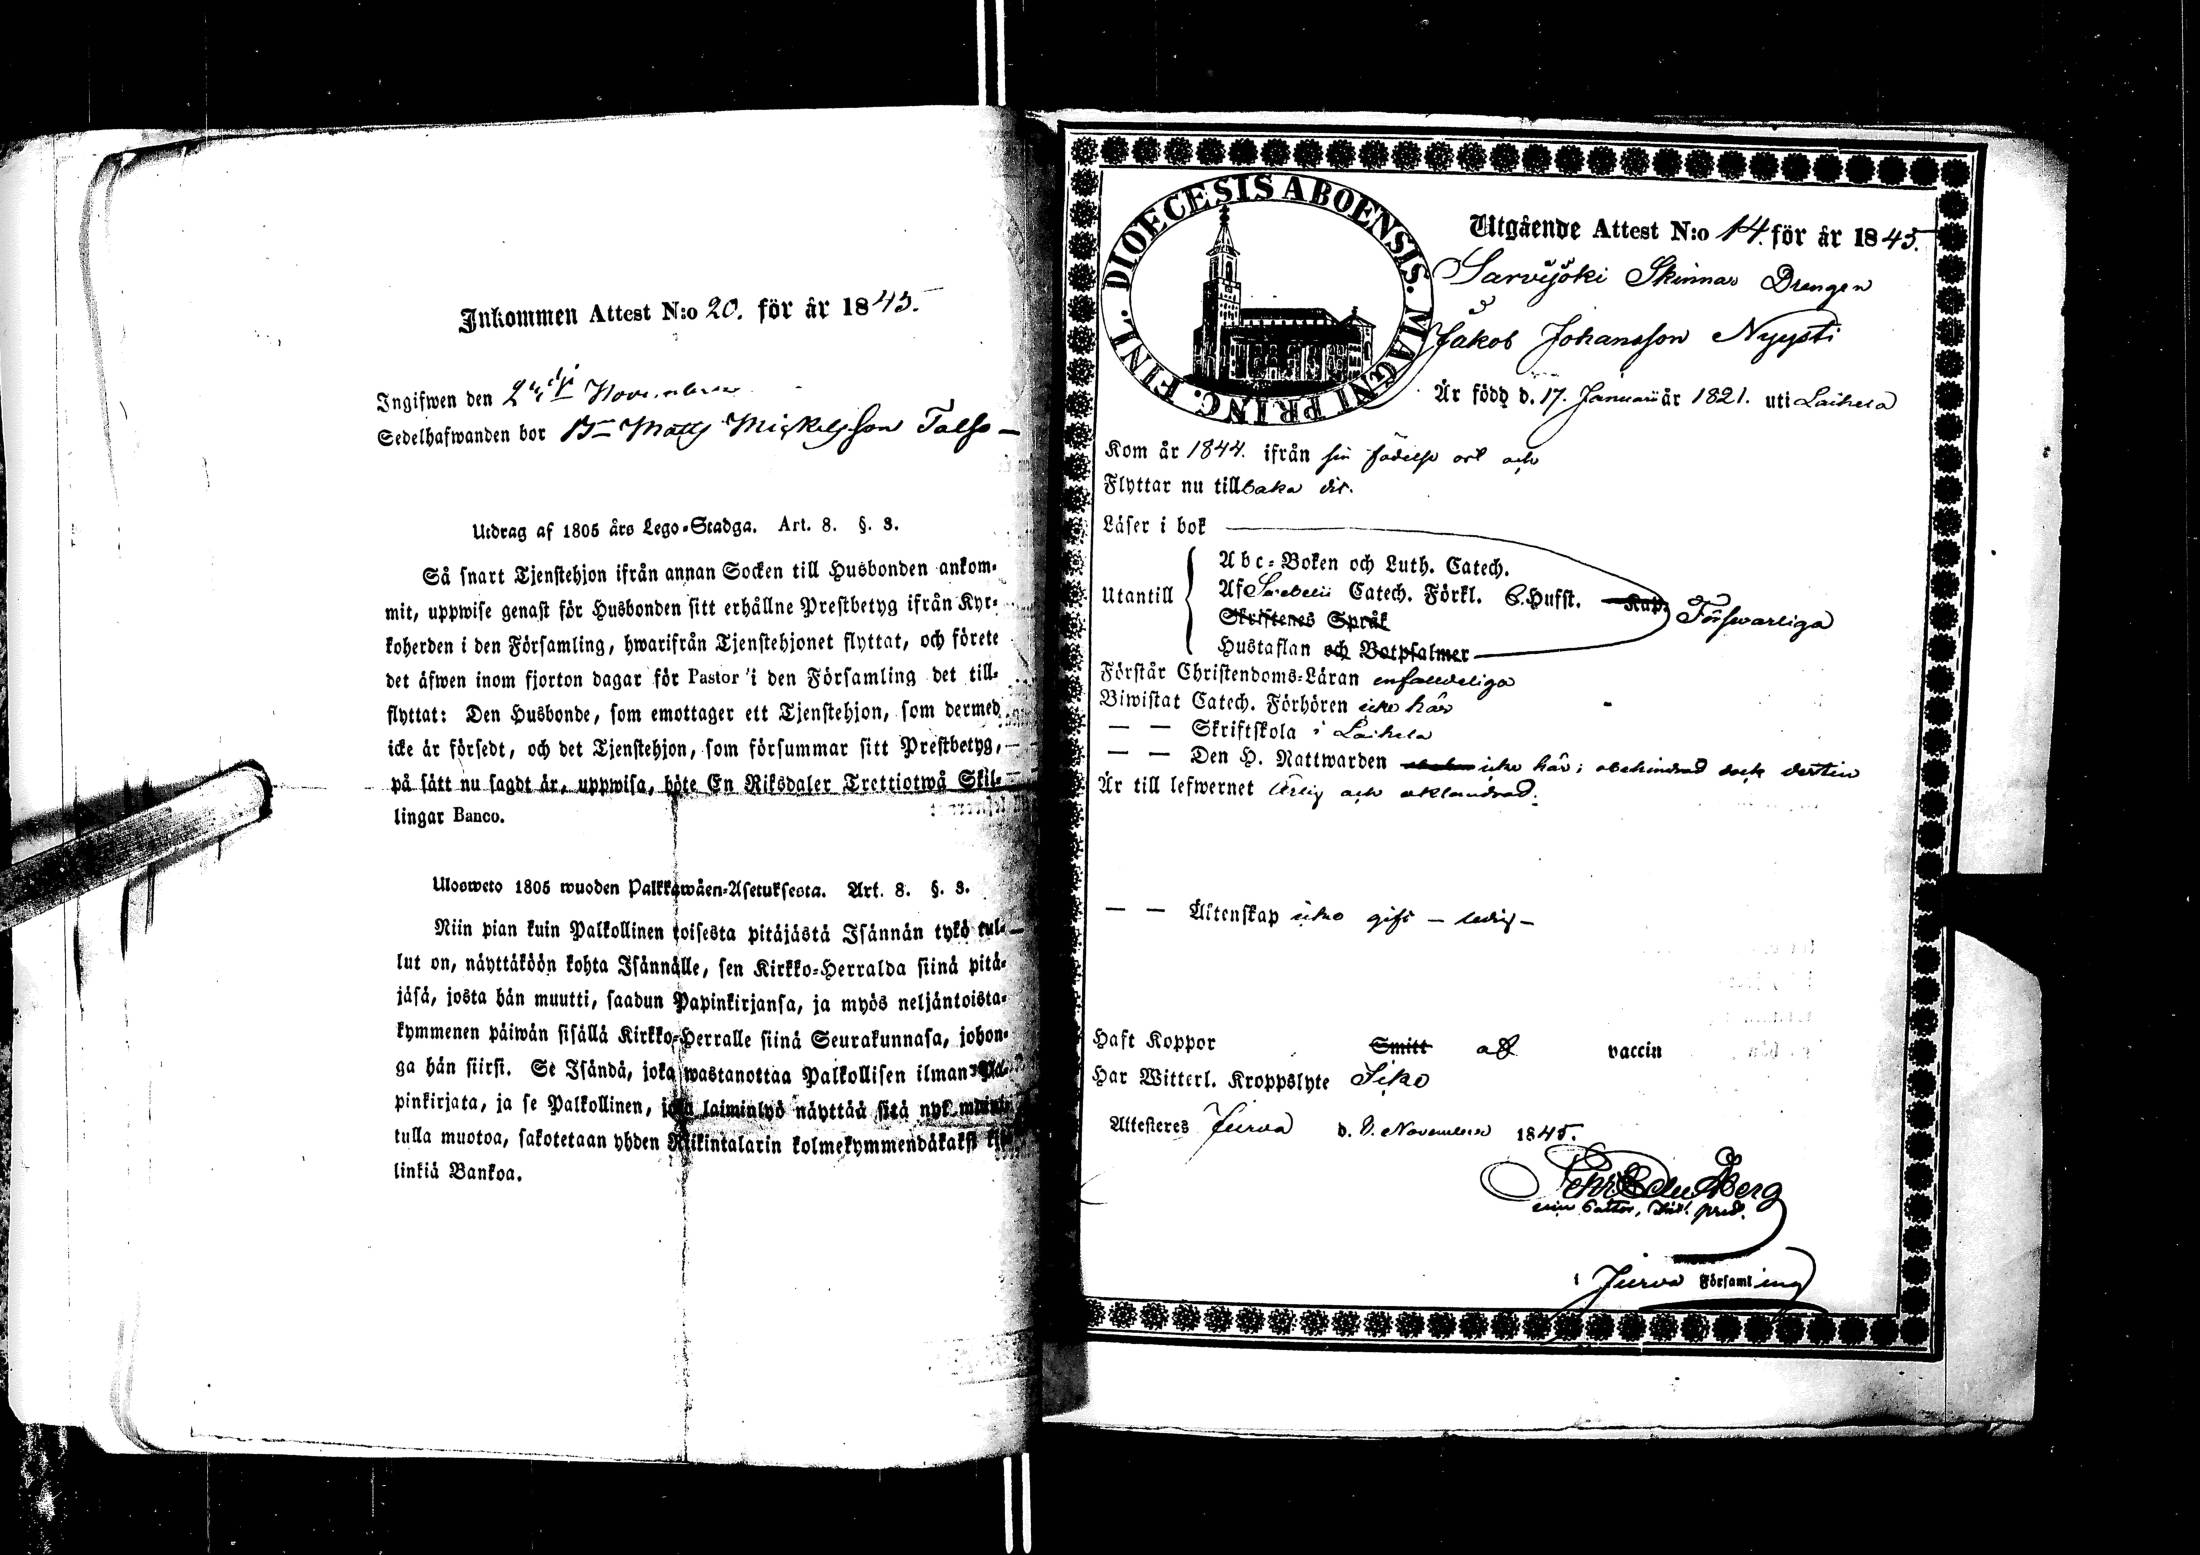 Inkommen Attest N:o 20. för år 1845.
Ingifwen den November
Sedelhafwanden bor Matts Mickelsson Talso
Utdrag af 1805 års Lego-Stadga. Art. 8. §. 3.
Så snart Tjenstehjon ifrån annan Socken till Husbonden ankom-
mit, uppwise genast för Husbonden sitt erhållne Prestbetyg ifrån Kyr-
koherden i den Församling, hwarifrån Tjenstehjonet flyttat, och förete
det äfwen inom fjorton dagar för Pastor i den Församling det till-
flyttat: Den Husbonde, som emottager ett Tjenstehjon, som dermed
icke är försedt, och det Tjenstehjon, som försummar sitt Prestbetyg,
på sätt nu sagdt är, uppwisa, böte En Riksdaler Trettiotwå Skil-
lingar Banco.
Ulosweto 1805 wuoden Palkkawäen-Asetuksesta. Art. 8. §. 3.
Niin pian kuin Palkollinen toisesta pitäjästä Isännän tykö tul-
lut on, näyttäköön kohta Isännälle, sen Kirkko-Herralda siinä pitä-
jäsä, josta hän muutti, saadun Papinkirjansa, ja myös neljäntoista-
kymmenen päiwän sisällä Kirkko-Herralle siinä Seurakunnasa, johon-
ga hän siirsi. Se Isändä, joka wastanottaa Palkollisen ilman Pa-
pinkirjata, ja se Palkollinen, joka laiminlyö näyttää sitä nyt
tulla muotoa, sakotetaan yhden Riikintalarin kolmekymmendäkaksi
linkiä Bankoa.
DIOECESIS ABOENSIS. MAGNI PRINC. FINL.
Utgående Attest N:o 14. för år 1845.
Sarvijoki Skinnar Drengen
Jakob Johansson Nyysti
Är född d. 17. Januarii år 1821. uti Laihela
Kom år 1844. ifrån sin födelse ort och
Flyttar nu tillbaka dit.
Läser i bok
Abc-Boken och Luth. Catech.
Utantill Af Catech. Förkl. Hufst. Kap. Förswarliga
Skriftenes Språk
Hustaflan och Botpsalmer
Förstår Christendoms-Läran enfaldeliga
Biwistat Catech. Förhören icke här
— — Skriftskola i Laihela
— — Den H. Nattwarden icke här; obehindrad dock dertill
Är till lefwernet ärlig och oklandrad.
— — Äktenskap icke gift – ledig –
Haft Koppor Smitt af vaccin
Har Witterl. Kroppslyte Icke
Attesteres Jurva d. November 1845.
i Jurva Församling